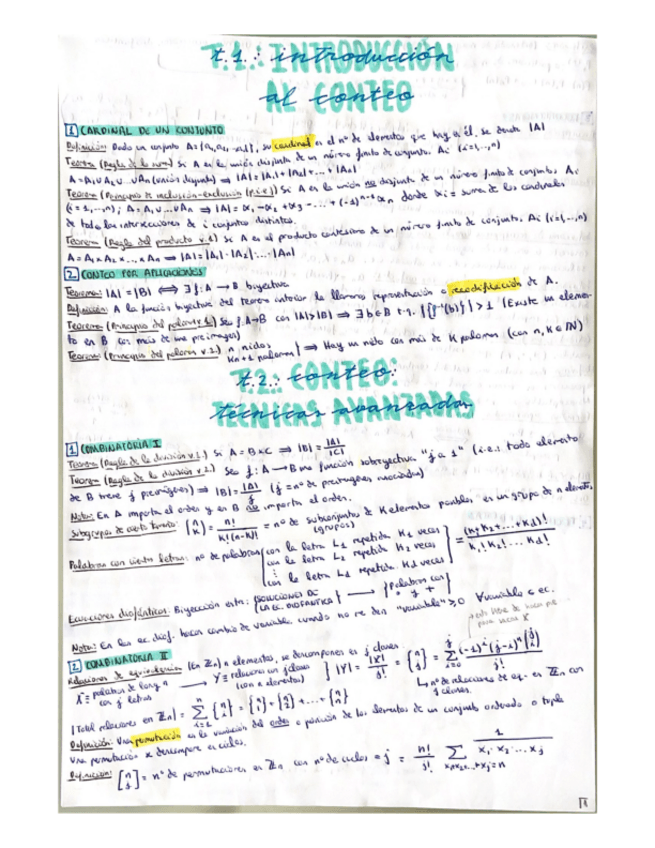 t.1.: INTRODUCCIÓN
al CONTEO
1 CARDINAL DE UN CONJUNTO
Definición: Dado un conjunto A={a₁,a₂,...,aₙ}, su cardinal es el nº de elementos que hay en él. Se denota |A|
Teorema (Regla de la suma) Si A es la unión disjunta de un número finito de conjuntos Ai (i=1,..,n)
A=A₁∪A₂∪...∪Aₙ (unión disjunta) ⇒ |A|=|A₁|+|A₂|+...+|Aₙ|
Teorema (Principio de inclusión-exclusión (p.i.e)) Si A es la unión no disjunta de un número finito de conjuntos Ai
(i=1,..,n); A=A₁∪...∪Aₙ ⇒ |A|=α₁-α₂+α₃-...+(-1)ⁿ⁺¹αₙ donde αi = suma de los cardinales
de todas las intersecciones de i conjuntos distintos.
Teorema (Regla del producto v.1) Si A es el producto cartesiano de un número finito de conjuntos Ai (i=1,..,n)
A=A₁×A₂×...×Aₙ ⇒ |A|=|A₁|·|A₂|·...|Aₙ|
2 CONTEO POR APLICACIONES
Teorema: |A|=|B| ⟺ ∃ f: A → B biyectiva
Definición: A la función biyectiva del teorema anterior la llamamos representación o recodificación de A.
Teorema (Principio del palomar v.1) Sea f: A→B con |A|>|B| ⇒ ∃ b∈B t.q. |{f⁻¹(b)}|>1 (Existe un elemen-
to en B con más de una preimagen)
Teorema (Principio del palomar v.2.) n nidos, Kn+1 palomas} ⇒ Hay un nido con más de K palomas (con n, K ∈ ℕ)
t.2.: CONTEO:
técnicas avanzadas
1 COMBINATORIA I
Teorema (Regla de la división v.1.) Si A=B×C ⇒ |B|=|A|/|C|
Teorema (Regla de la división v.2.) Sea f: A→B una función sobreyectiva "j a 1" (i.e.: todo elemento
de B tiene j preimágenes) ⇒ |B|=|A|/j (j = nº de preimágenes asociadas)
Nota: En A importa el orden y en B no importa el orden.
Subgrupos de cierto tamaño: (n k) = n!/K!(n-K)! = nº de subconjuntos (grupos) de K elementos posibles en un grupo de n elementos
Palabras con ciertas letras: nº de palabras {con la letra L₁ repetida K₁ veces
con la letra L₂ repetida K₂ veces
⋮
con la letra L repetida K veces} = (K₁+K₂+...+K)!/K₁!K₂!...K!
Ecuaciones diofánticas: Biyección entre: {SOLUCIONES DE LA EC. DIOFÁNTICA} → {Palabras con • y +}
Nota: En las ec. diof. hacer cambio de variable cuando no me den "variable" ≥0 ∀variable ∈ ec.
2 COMBINATORIA II
Relaciones de equivalencia (en ℤn) n elementos, se descomponen en j clases
X= palabras de long n con j letras → Y= relaciones con j clases (con n elementos)} |Y|=|X|/j! = {n j} = Σ(-1)ⁱ(j-i)ⁿ(j i)/j!
↳ nº de relaciones de eq. en ℤn con j clases.
|Total relaciones en ℤn| = Σ {n i} = {n 1}+{n 2}+...+{n n}
Definición: Una permutación es la variación del orden o posición de los elementos de un conjunto ordenado o tupla
Una permutación se descompone en ciclos.
Definición: [n j] = nº de permutaciones en ℤn con nº de ciclos = j = n!/j! Σ 1/x₁·x₂·...xj
x₁+x₂+...+xj=n